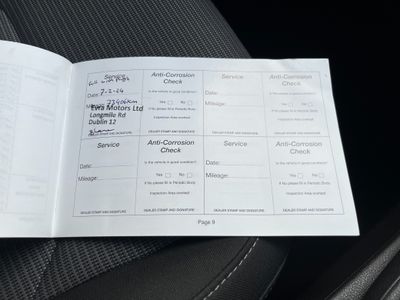 Service
Full with Plugs
Date: 7-2-24
Mileage: 77406km
Ewa Motors Ltd
Longmile Rd
Dublin 12
DEALER STAMP AND SIGNATURE
Anti-Corrosion
Check
Is the vehicle in good condition?
Yes No
If No please fill in Periodic Body
Inspection Area worked
DEALER STAMP AND SIGNATURE
Service
Date:
Mileage:
DEALER STAMP AND SIGNATURE
Anti-Corrosion
Check
Is the vehicle in good condition?
Yes No
If No please fill in Periodic Body
Inspection Area worked
DEALER STAMP AND SIGNATURE
Service
Date:
Mileage:
DEALER STAMP AND SIGNATURE
Anti-Corrosion
Check
Is the vehicle in good condition?
Yes No
If No please fill in Periodic Body
Inspection Area worked
DEALER STAMP AND SIGNATURE
Service
Date:
Mileage:
DEALER STAMP AND SIGNATURE
Anti-Corrosion
Check
Is the vehicle in good condition?
Yes No
If No please fill in Periodic Body
Inspection Area worked
DEALER STAMP AND SIGNATURE
Page 9